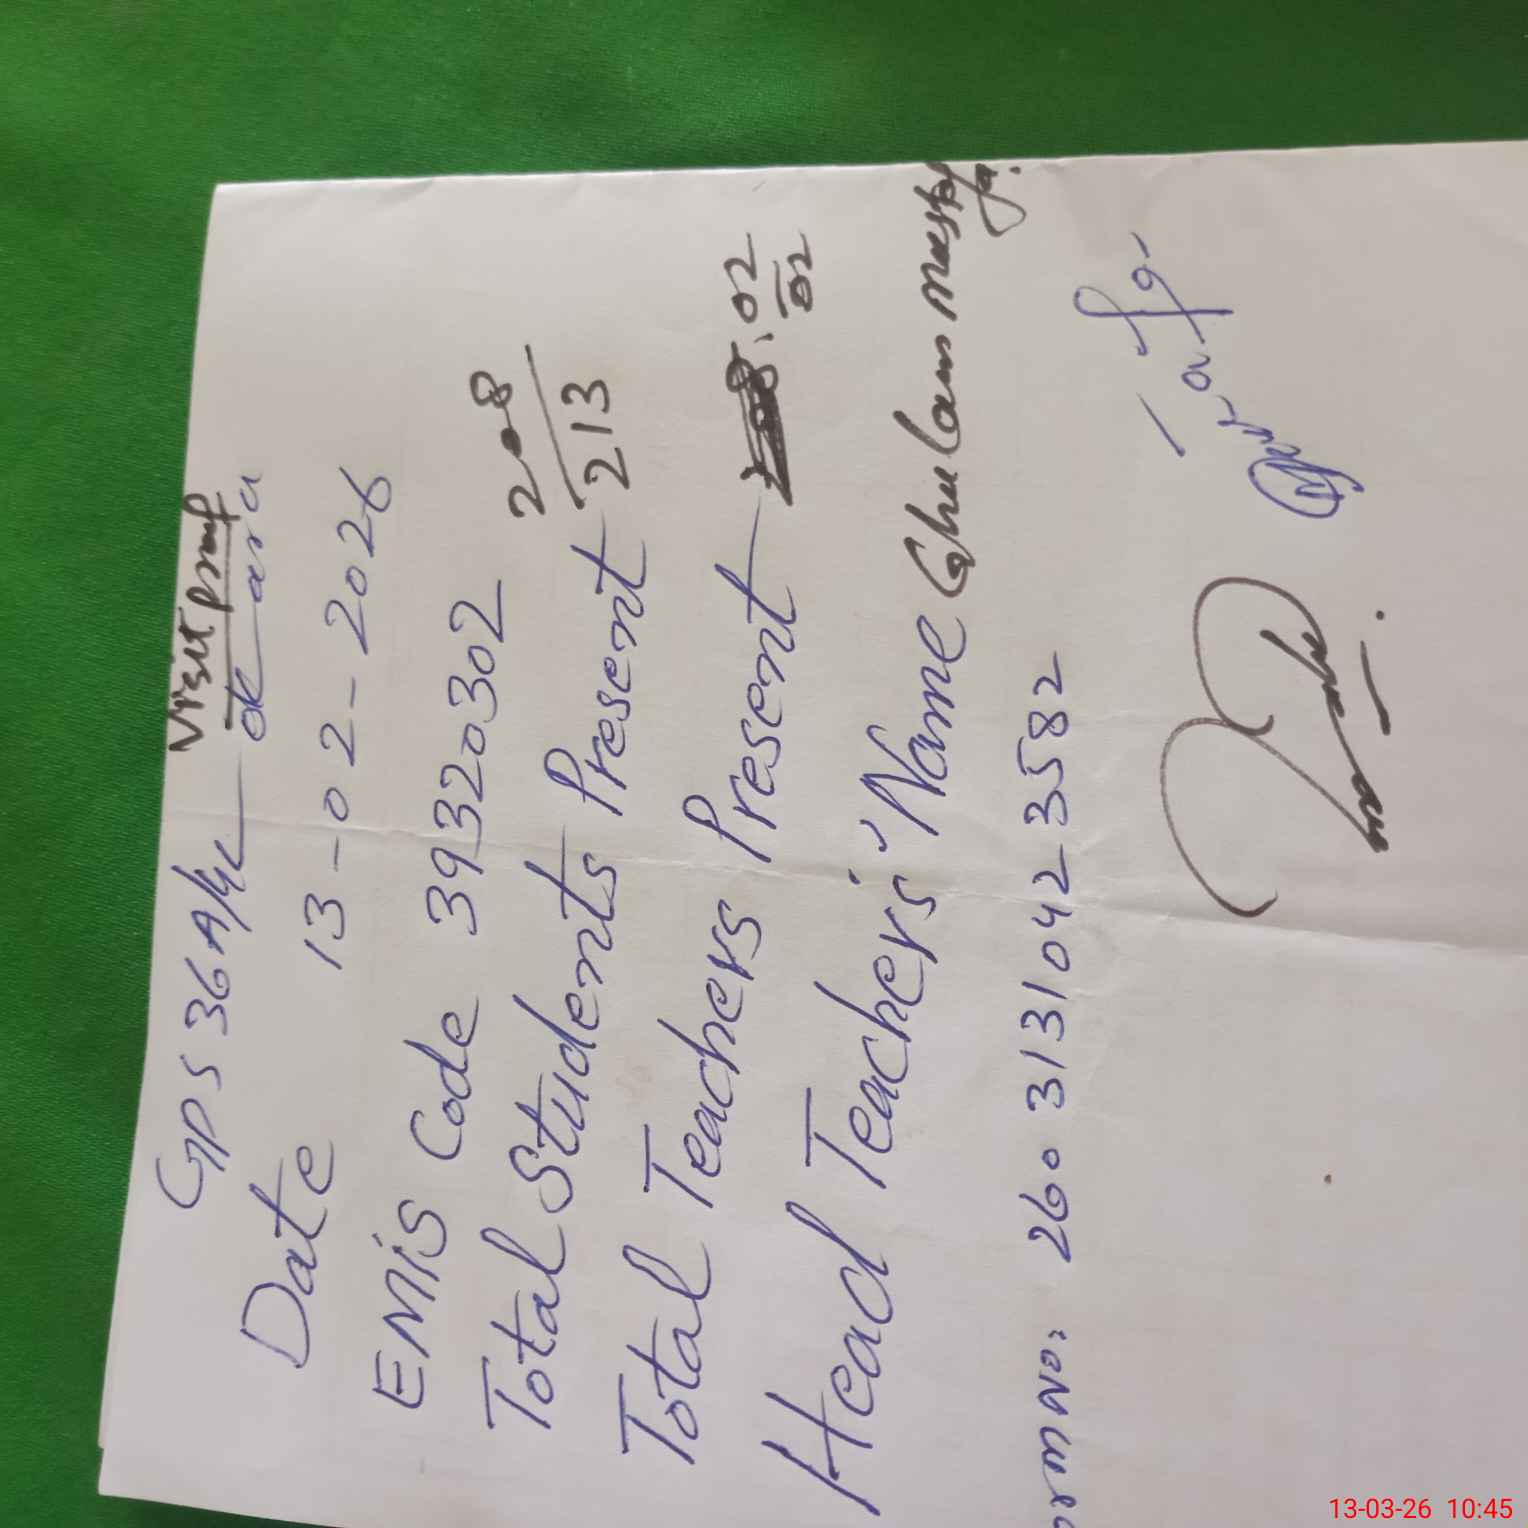 Visit Proof
GPS 36 A/4L — okara
Date 13-02-2026
EMIS Code 39320302
Total Students Present 208/213
Total Teachers Present — 02/02
Head Teachers' Name Ghulam Mustafa.
orm No: 260 3131042-3582
13-03-26 10:45